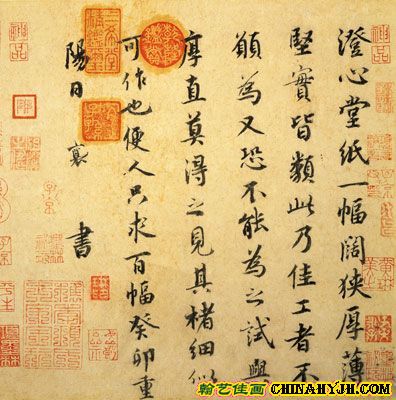 澄心堂紙一幅闊狹厚薄
堅實皆類此乃佳工者不
願為又恐不能為之試與
厚直莫得之見其楮細似
可作也便人只求百幅癸卯重
陽日襄書
翰艺佳画 CHINAHYJH.COM